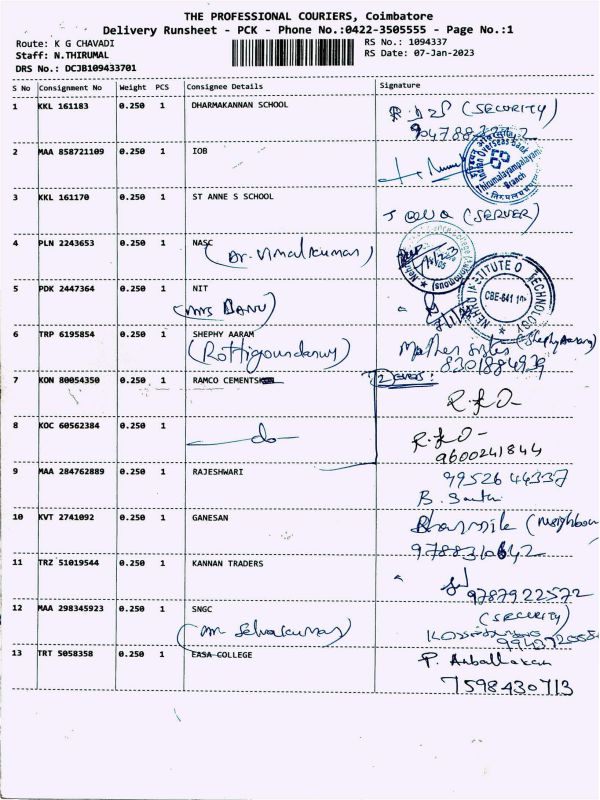 THE PROFESSIONAL COURIERS, Coimbatore
Delivery Runsheet - PCK - Phone No.:0422-3505555 - Page No.:1
Route: K G CHAVADI
Staff: N.THIRUMAL
DRS No.: DCJB109433701
RS No.: 1094337
RS Date: 07-Jan-2023
S No Consignment No Weight PCS Consignee Details Signature
1 KKL 161183 0.250 1 DHARMAKANNAN SCHOOL (SECURITY)
2 MAA 858721109 0.250 1 IOB
Indian Overseas Bank Thirumalayampalayam Branch
3 KKL 161170 0.250 1 ST ANNE S SCHOOL (SERVER)
4 PLN 2243653 0.250 1 NASC
(Dr. Vimalkumar)
5 PDK 2447364 0.250 1 NIT
(MRS BANU)
NEHRU INSTITUTE OF TECHNOLOGY
CBE-641 105
6 TRP 6195854 0.250 1 SHEPHY AARAM
(Rottigoundanur)
8301884939
7 KON 80054350 0.250 1 RAMCO CEMENTS
8 KOC 60562384 0.250 1 do
9600241844
9 MAA 284762889 0.250 1 RAJESHWARI 9952644337
10 KVT 2741092 0.250 1 GANESAN (Neighbour
9788310642
11 TRZ 51019544 0.250 1 KANNAN TRADERS
9787922572
12 MAA 298345923 0.250 1 SNGC (SECURITY)
(Mr Selvakumar)
13 TRT 5058358 0.250 1 EASA COLLEGE
7598430713